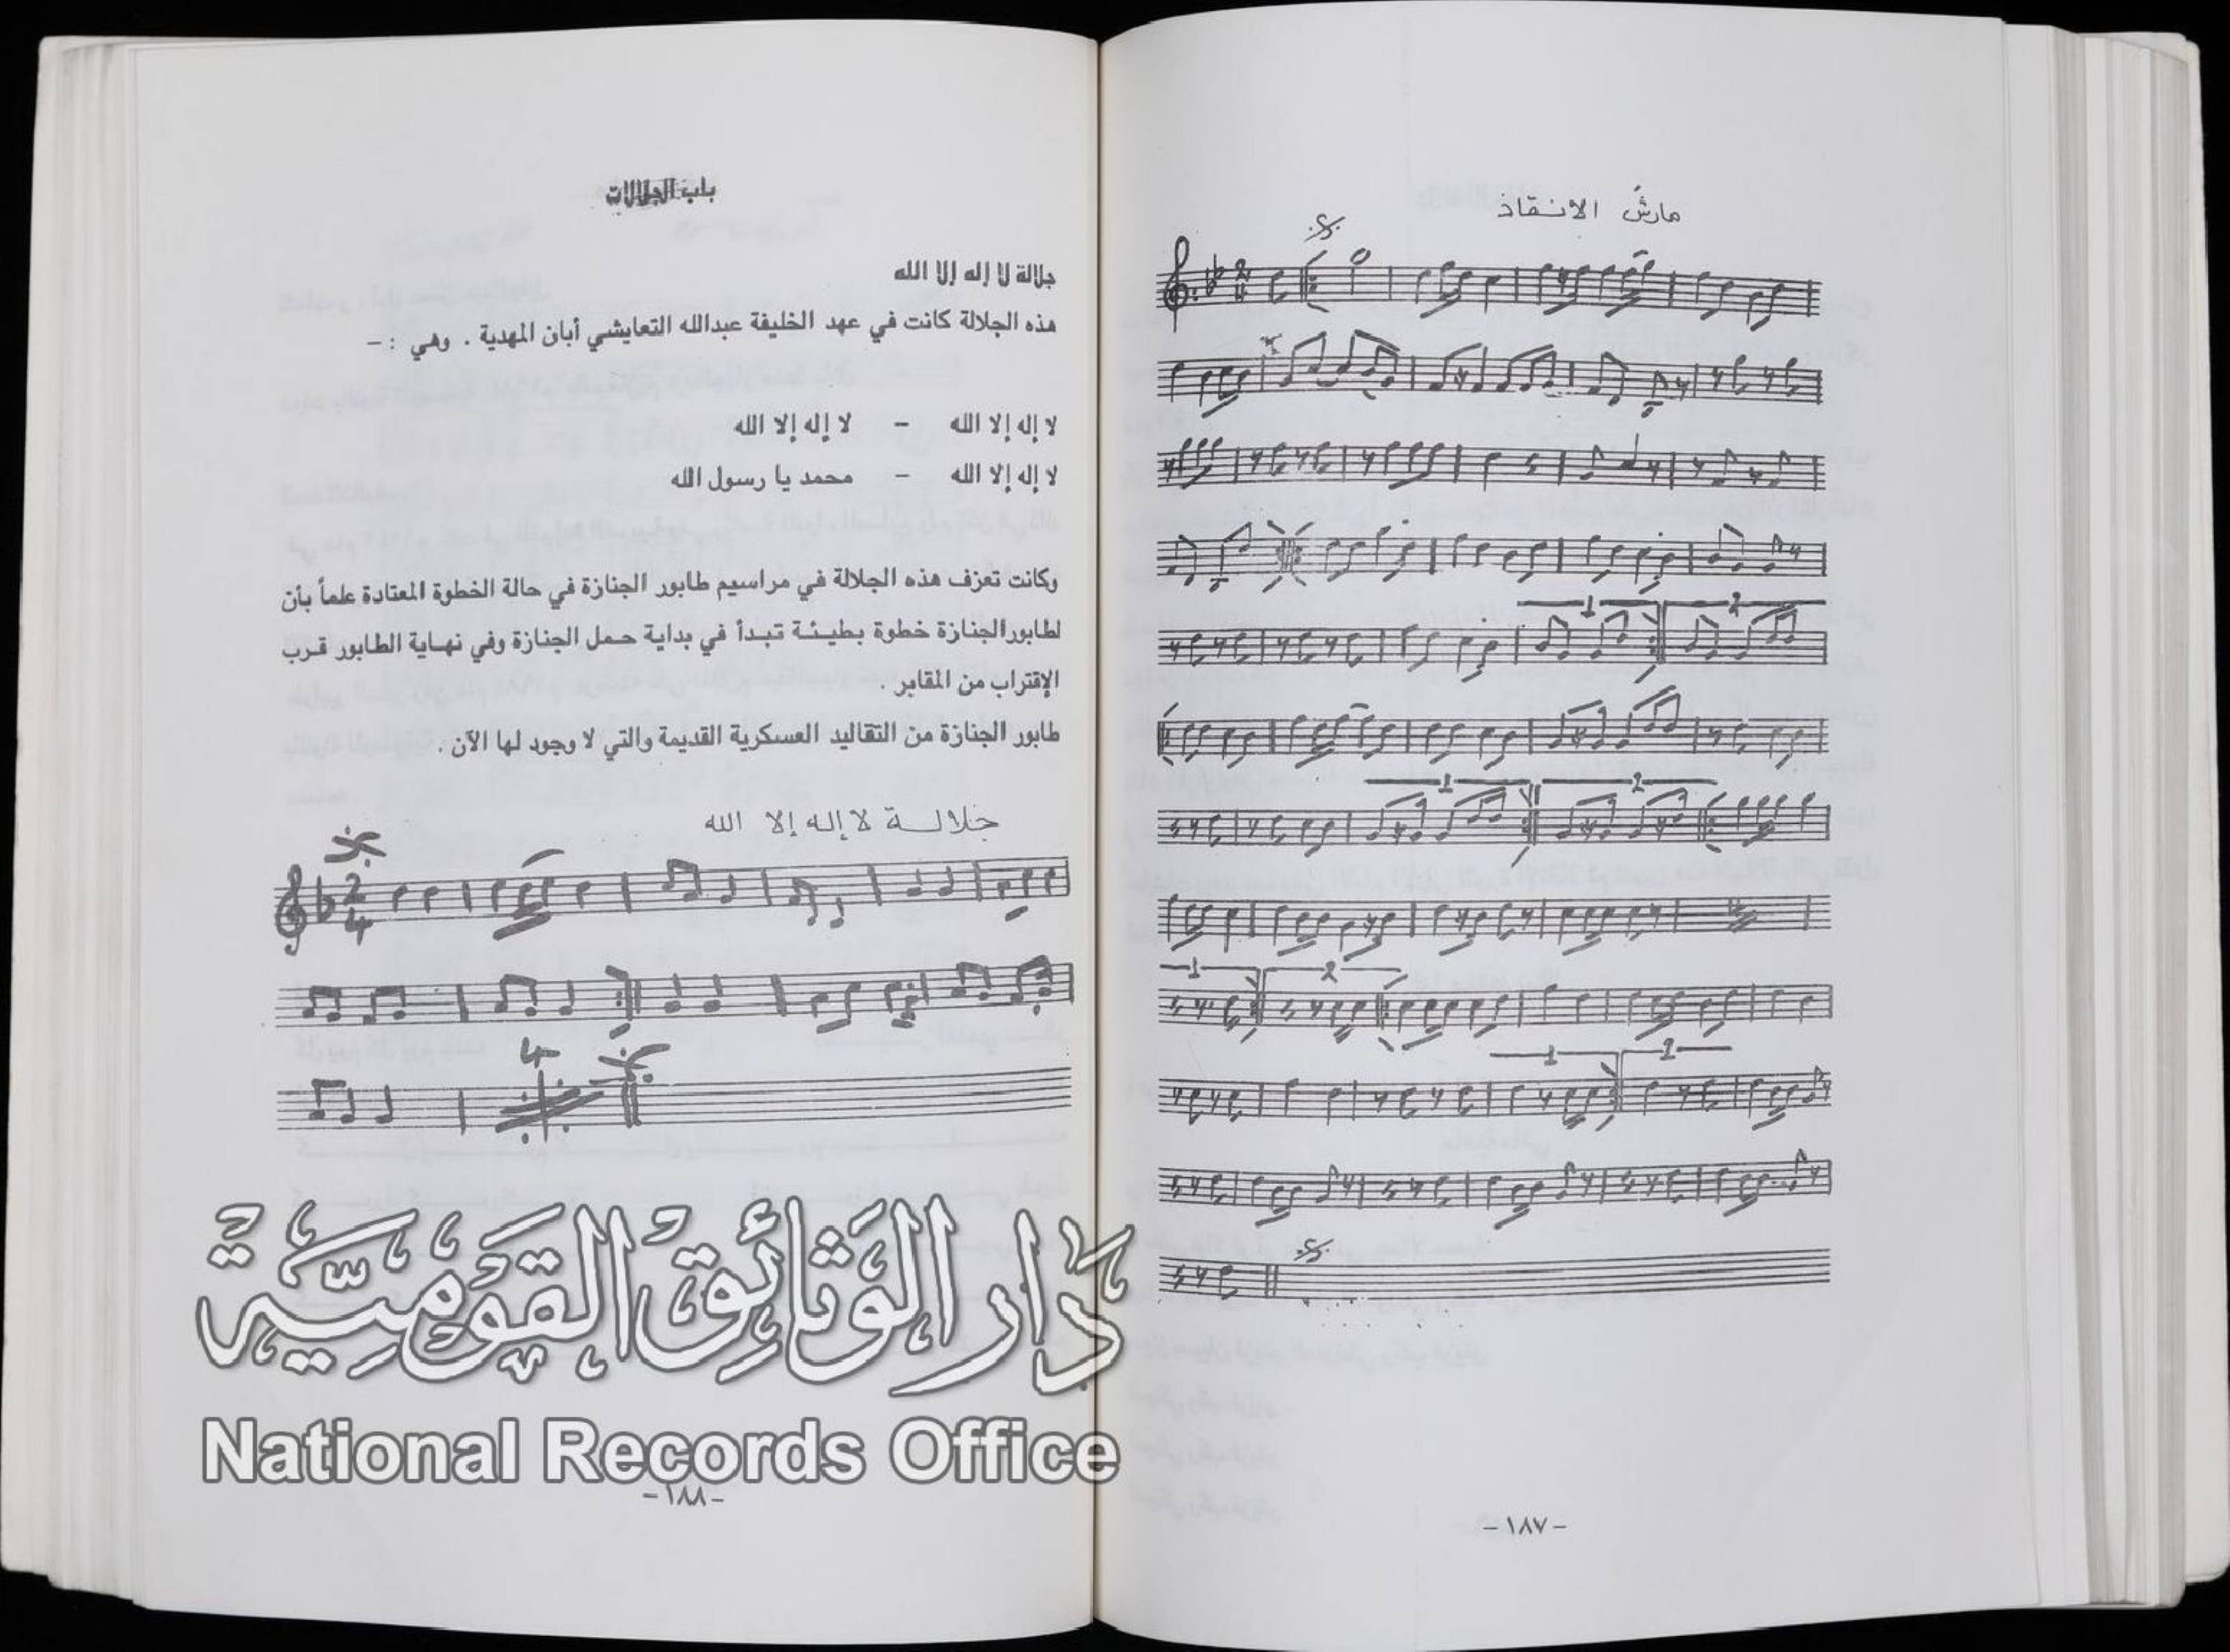 مارش الانقاذ
- ١٨٧ -
باب الجلالات
جلالة لا إله إلا الله
هذه الجلالة كانت في عهد الخليفة عبدالله التعايشي أبان المهدية . وهي : -
لا إله إلا الله - لا إله إلا الله
لا إله إلا الله - محمد يا رسول الله
وكانت تعزف هذه الجلالة في مراسيم طابور الجنازة في حالة الخطوة المعتادة علماً بأن
لطابور الجنازة خطوة بطيئة تبدأ في بداية حمل الجنازة وفي نهاية الطابور قرب
الإقتراب من المقابر .
طابور الجنازة من التقاليد العسكرية القديمة والتي لا وجود لها الآن .
جلالة لا إله إلا الله
دَار الوَثائِق القَوْمِيَّة
National Records Office
- ١٨٨ -